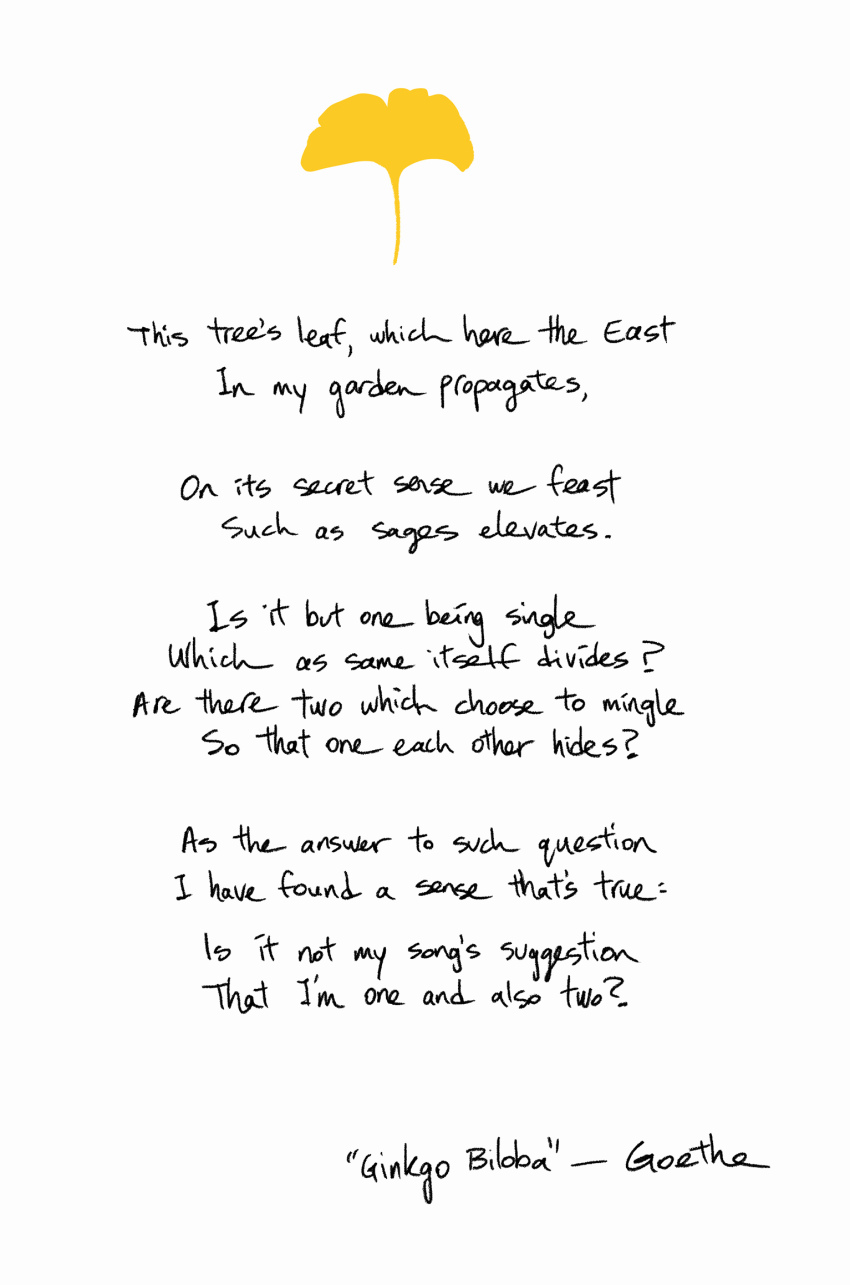 This tree's leaf, which here the East
In my garden propagates,
On its secret sense we feast
Such as sages elevates.
Is it but one being single
Which as same itself divides?
Are there two which choose to mingle
So that one each other hides?
As the answer to such question
I have found a sense that's true:
Is it not my song's suggestion
That I'm one and also two?
"Ginkgo Biloba" — Goethe